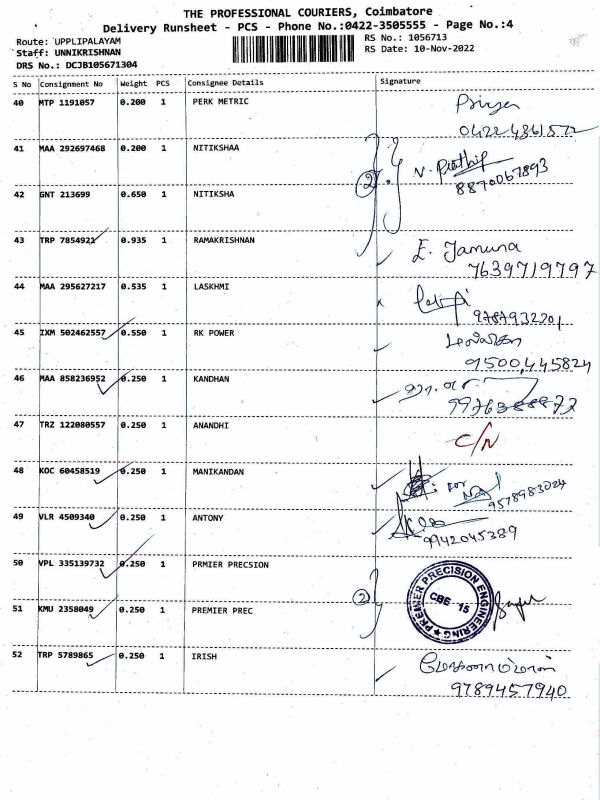 THE PROFESSIONAL COURIERS, Coimbatore
Delivery Runsheet - PCS - Phone No.:0422-3505555 - Page No.:4
Route: UPPLIPALAYAM
Staff: UNNIKRISHNAN
DRS No.: DCJB105671304
RS No.: 1056713
RS Date: 10-Nov-2022
S No Consignment No Weight PCS Consignee Details Signature
40 MTP 1191057 0.200 1 PERK METRIC Priya
0422 4361572
41 MAA 292697468 0.200 1 NITIKSHAA
2 N. Prathip
8870067893
42 GNT 213699 0.650 1 NITIKSHA
43 TRP 7854921 0.935 1 RAMAKRISHNAN E. Jamuna
7639719797
44 MAA 295627217 0.535 1 LASKHMI
9787932201
45 IXM 502462557 0.550 1 RK POWER
9500445824
46 MAA 858236952 0.250 1 KANDHAN
47 TRZ 122080557 0.250 1 ANANDHI C/N
48 KOC 60458519 0.250 1 MANIKANDAN for
9578983024
49 VLR 4509340 0.250 1 ANTONY
9942045389
50 VPL 335139732 0.250 1 PRMIER PRECSION
2 PREMIER PRECISION ENGINEERING
CBE - 15
51 KMU 2358049 0.250 1 PREMIER PREC
52 TRP 5789865 0.250 1 IRISH
9789457940